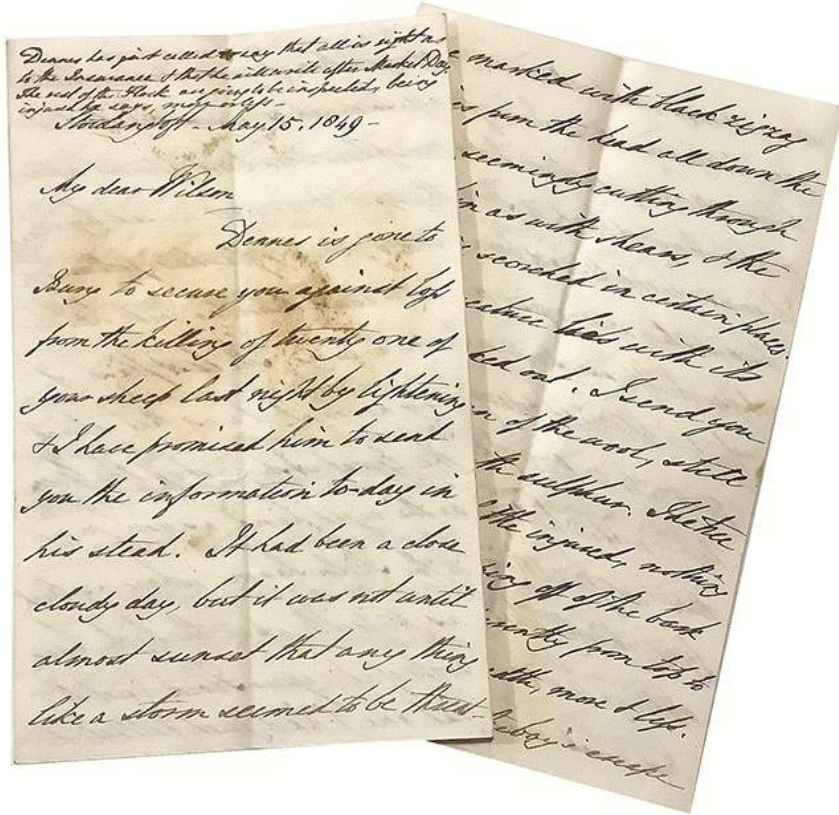 Dennes has just called to say that all is right as
to the Insurance & that he will write after Market Day.
The rest of the Flock are going to be inspected, being
injured he says, more or less –
Stowlangtoft – May 15. 1849 –
My dear Wilson
Dennes is gone to
Bury to secure you against loss
from the killing of twenty one of
your sheep last night by lightening
& I have promised him to send
you the information to-day in
his stead. It had been a close
cloudy day, but it was not until
almost sunset that any thing
like a storm seemed to be threat-
marked with black zigzag
from the head all down the
seemingly cutting through
as with shears, & the
scorched in certain places.
lies with its
out. I send you
of the wool, still
sulphur.
the injured, nothing
off of the bark
from top to
more & less.
boy's escape